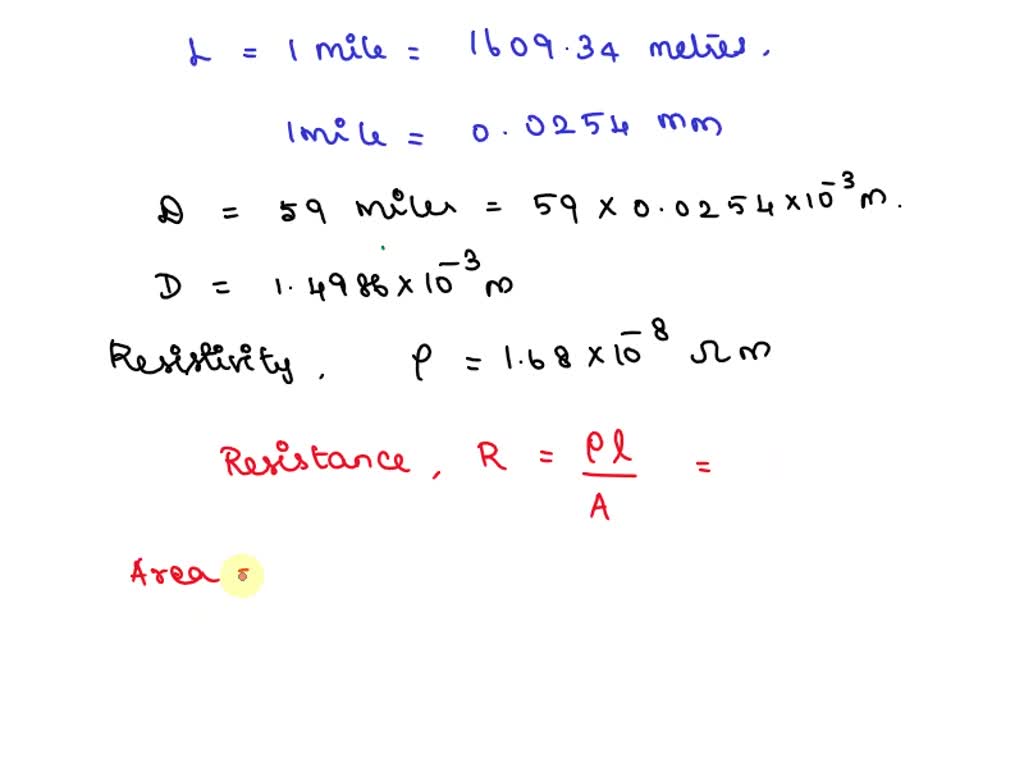 L = 1 mile = 1609.34 metres.
1 mile = 0.0254 mm
D = 59 miles = 59 × 0.0254 × 10⁻³ m.
D = 1.4986 × 10⁻³ m
Resistivity, ρ = 1.68 × 10⁻⁸ Ω m
Resistance, R = ρl/A =
Area =